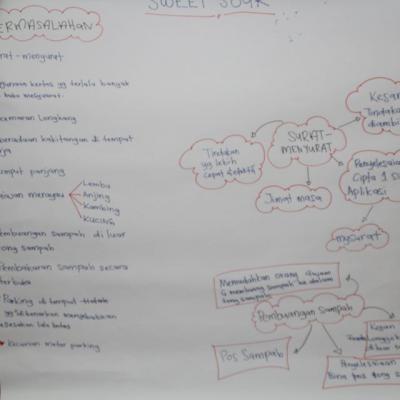 SWEET SOUR
ERMASALAHAN
rat - menyurat
gunaan kertas yg terlalu banyak
cemaran Longkang
beradaan kakitangan di tempat
rja
mput panjang
aiwan merayau
Lembu
Anjing
Kambing
Kucing
embuangan sampah di luar
ong sampah
Pembakaran sampah secara
terbuka
Parking di tempat
yg dibenarkan menyebabkan
kesesakan lalu lintas
Kecurian motor parking
SURAT-
MENYURAT
Tindakan
yg lebih
cepat & efektif
Jimat masa
Kesan
Tindaka
diambi
Penyelesaia
Cipta 1 S
Aplikasi
mysurat
Memudahkan orang awam
membuang sampah ke dalam
tong sampah
Pembuangan Sampah
Pos Sampah
Kesan
Penyelesaian
Bina pos tong s